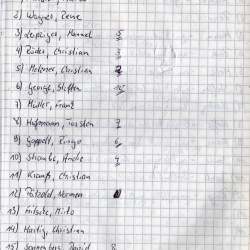 2) Wagner, Rene
3) Leipziger, Manuel 5
4) Röder, Christian 3
5) Metzner, Christian 2
6) George, Steffen
7) Müller, Franz
8) Hoffmann, Torsten 7
9) Göppelt, Ringo 6
10) Strauß, Andre 4
11) Krauß, Christian
12) Pätzold, Normen
13) Fritsche, Mirko
14) Hartig, Christian
15) Sonnenberg, David 8